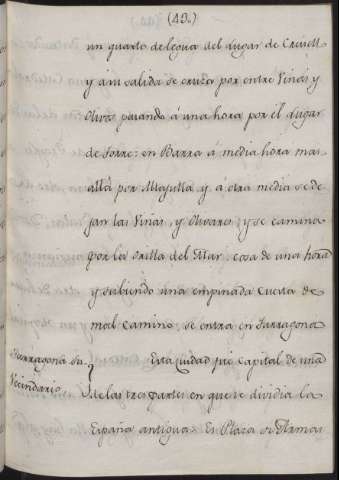 (49.)
un quarto de legua del Lugar de Creixell
y á su salida se cruza por entre Viñas y
Olivos pasando á una hora por el Lugar
de Torre: en Barra á media hora mas
allá por Altafulla y á otra media se de
jan las Viñas, y Olivares, y se camina
por la Orilla del Mar: cosa de una hora
y subiendo una empinada cuesta de
mal camino, se entra en Tarragona
Tarragona su
Vecindario.
Esta Ciudad fue capital de una
de las tres partes en que se dividia la
España antigua. Es Plaza de Armas